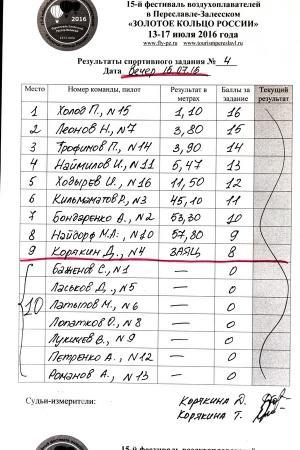 2016
15-й фестиваль воздухоплавателей
в Переславле-Залесском
«ЗОЛОТОЕ КОЛЬЦО РОССИИ»
13-17 июля 2016 года
www.fly-pz.ru www.tourismpereslavl.ru
Результаты спортивного задания № 4
Дата вечер 15.07.16
Место Номер команды, пилот Результат в метрах Баллы за задание Текущий результат
1 Холод П., N15 1,10 16
2 Леонов Н., N7 3,80 15
3 Трофимов П., N14 3,90 14
4 Наймилов И., N11 5,47 13
5 Ходырев И., N16 11,50 12
6 Кильматов Р., N3 45,10 11
7 Бондаренко А., N2 53,30 10
8 Найдорф М.А., N10 57,80 9
9 Корякин Д., N4 ЗАЯЦ 8
10
Баженов С., N1 — 0
Ласьков Д., N5 — 0
Латыпов М., N6 — 0
Лопатков О., N8 — 0
Лукичев В., N9 — 0
Петренко А., N12 — 0
Романов А., N13 — 0
Судьи-измерители: Корякина Д.
Корякина Т.
15-й фестиваль воздухоплавателей